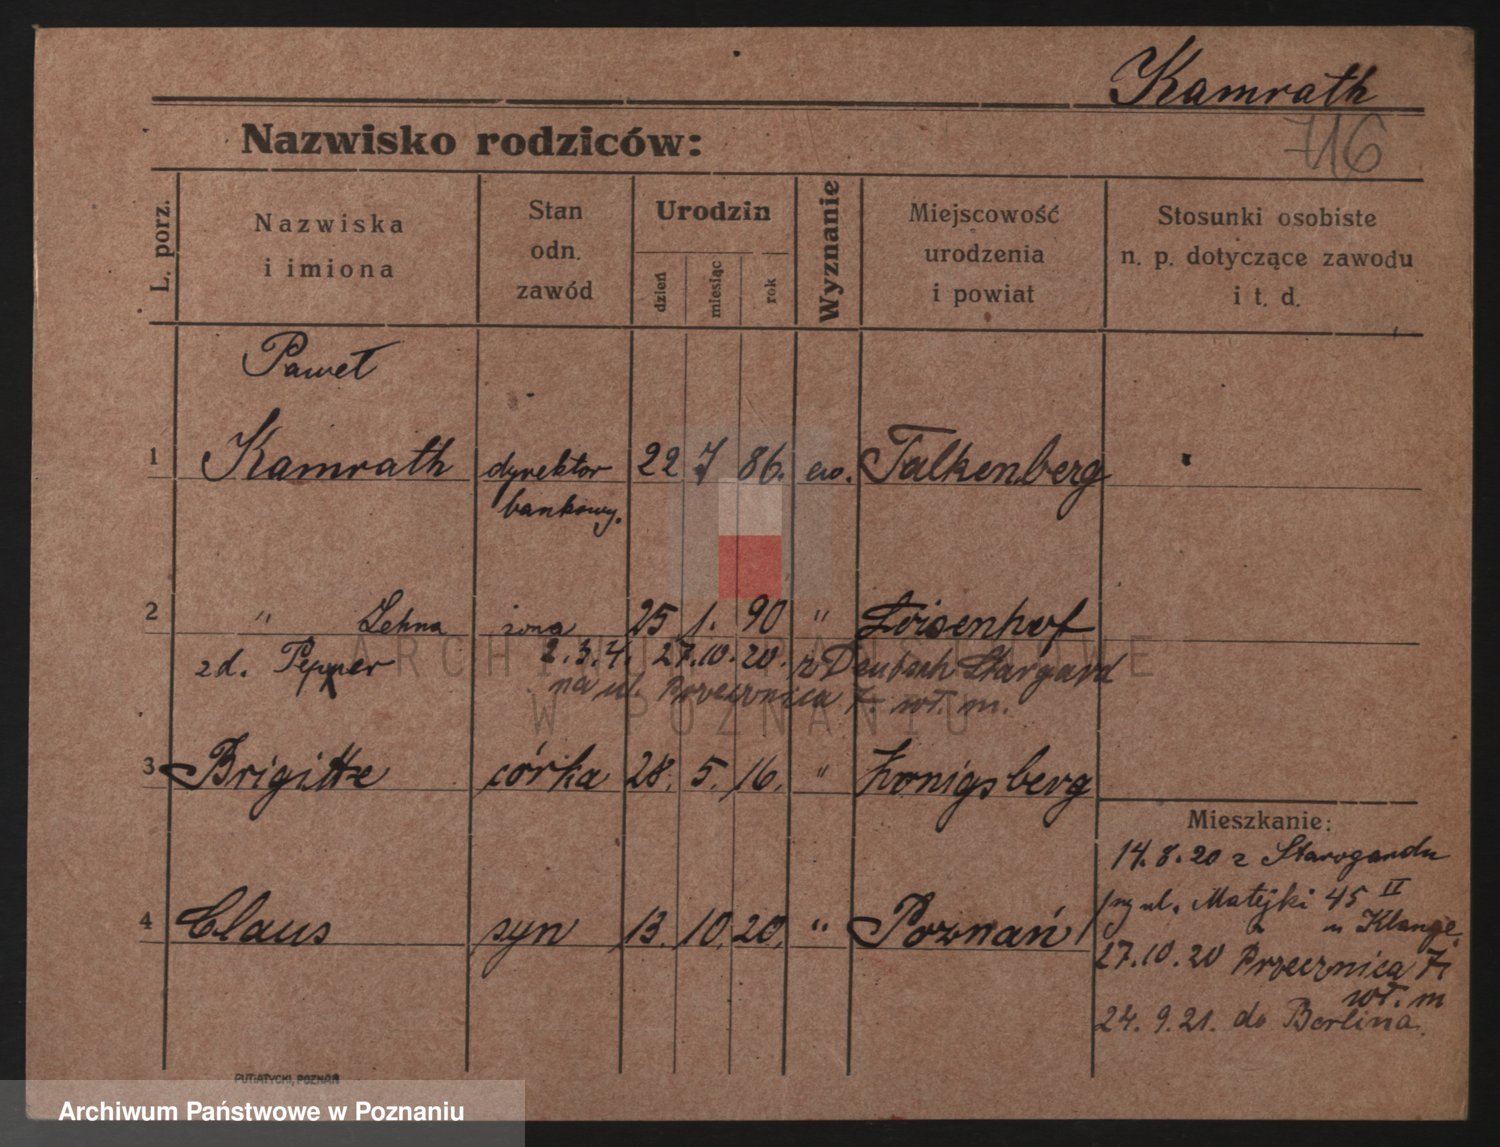 Kamrath
716
Nazwisko rodziców:
L. porz.
Nazwiska
i imiona
Stan
odn.
zawód
Urodzin
dzień
miesiąc
rok
Wyznanie
Miejscowość
urodzenia
i powiat
Stosunki osobiste
n. p. dotyczące zawodu
i t. d.
Paweł
1 Kamrath dyrektor 22 7 86. ew. Falkenberg
bankowy.
2 " żona 25 1. 90 "
zd. Pepper 2.3.4. 27.10.20. z Deutsch Stargard
na ul. Przecznica 7. wł. m.
3 Brigitte córka 28. 5. 16. " Königsberg
Mieszkanie:
14.8.20 z Starogardu
przy ul. Matejki 45 II
u Klange
4 Claus syn 13. 10. 20. " Poznań
27.10.20 Przecznica 7
wł. m
24. 9. 21. do Berlina.
PUTIATYCKI, POZNAŃ
ARCHIWUM PAŃSTWOWE
W POZNANIU
Archiwum Państwowe w Poznaniu